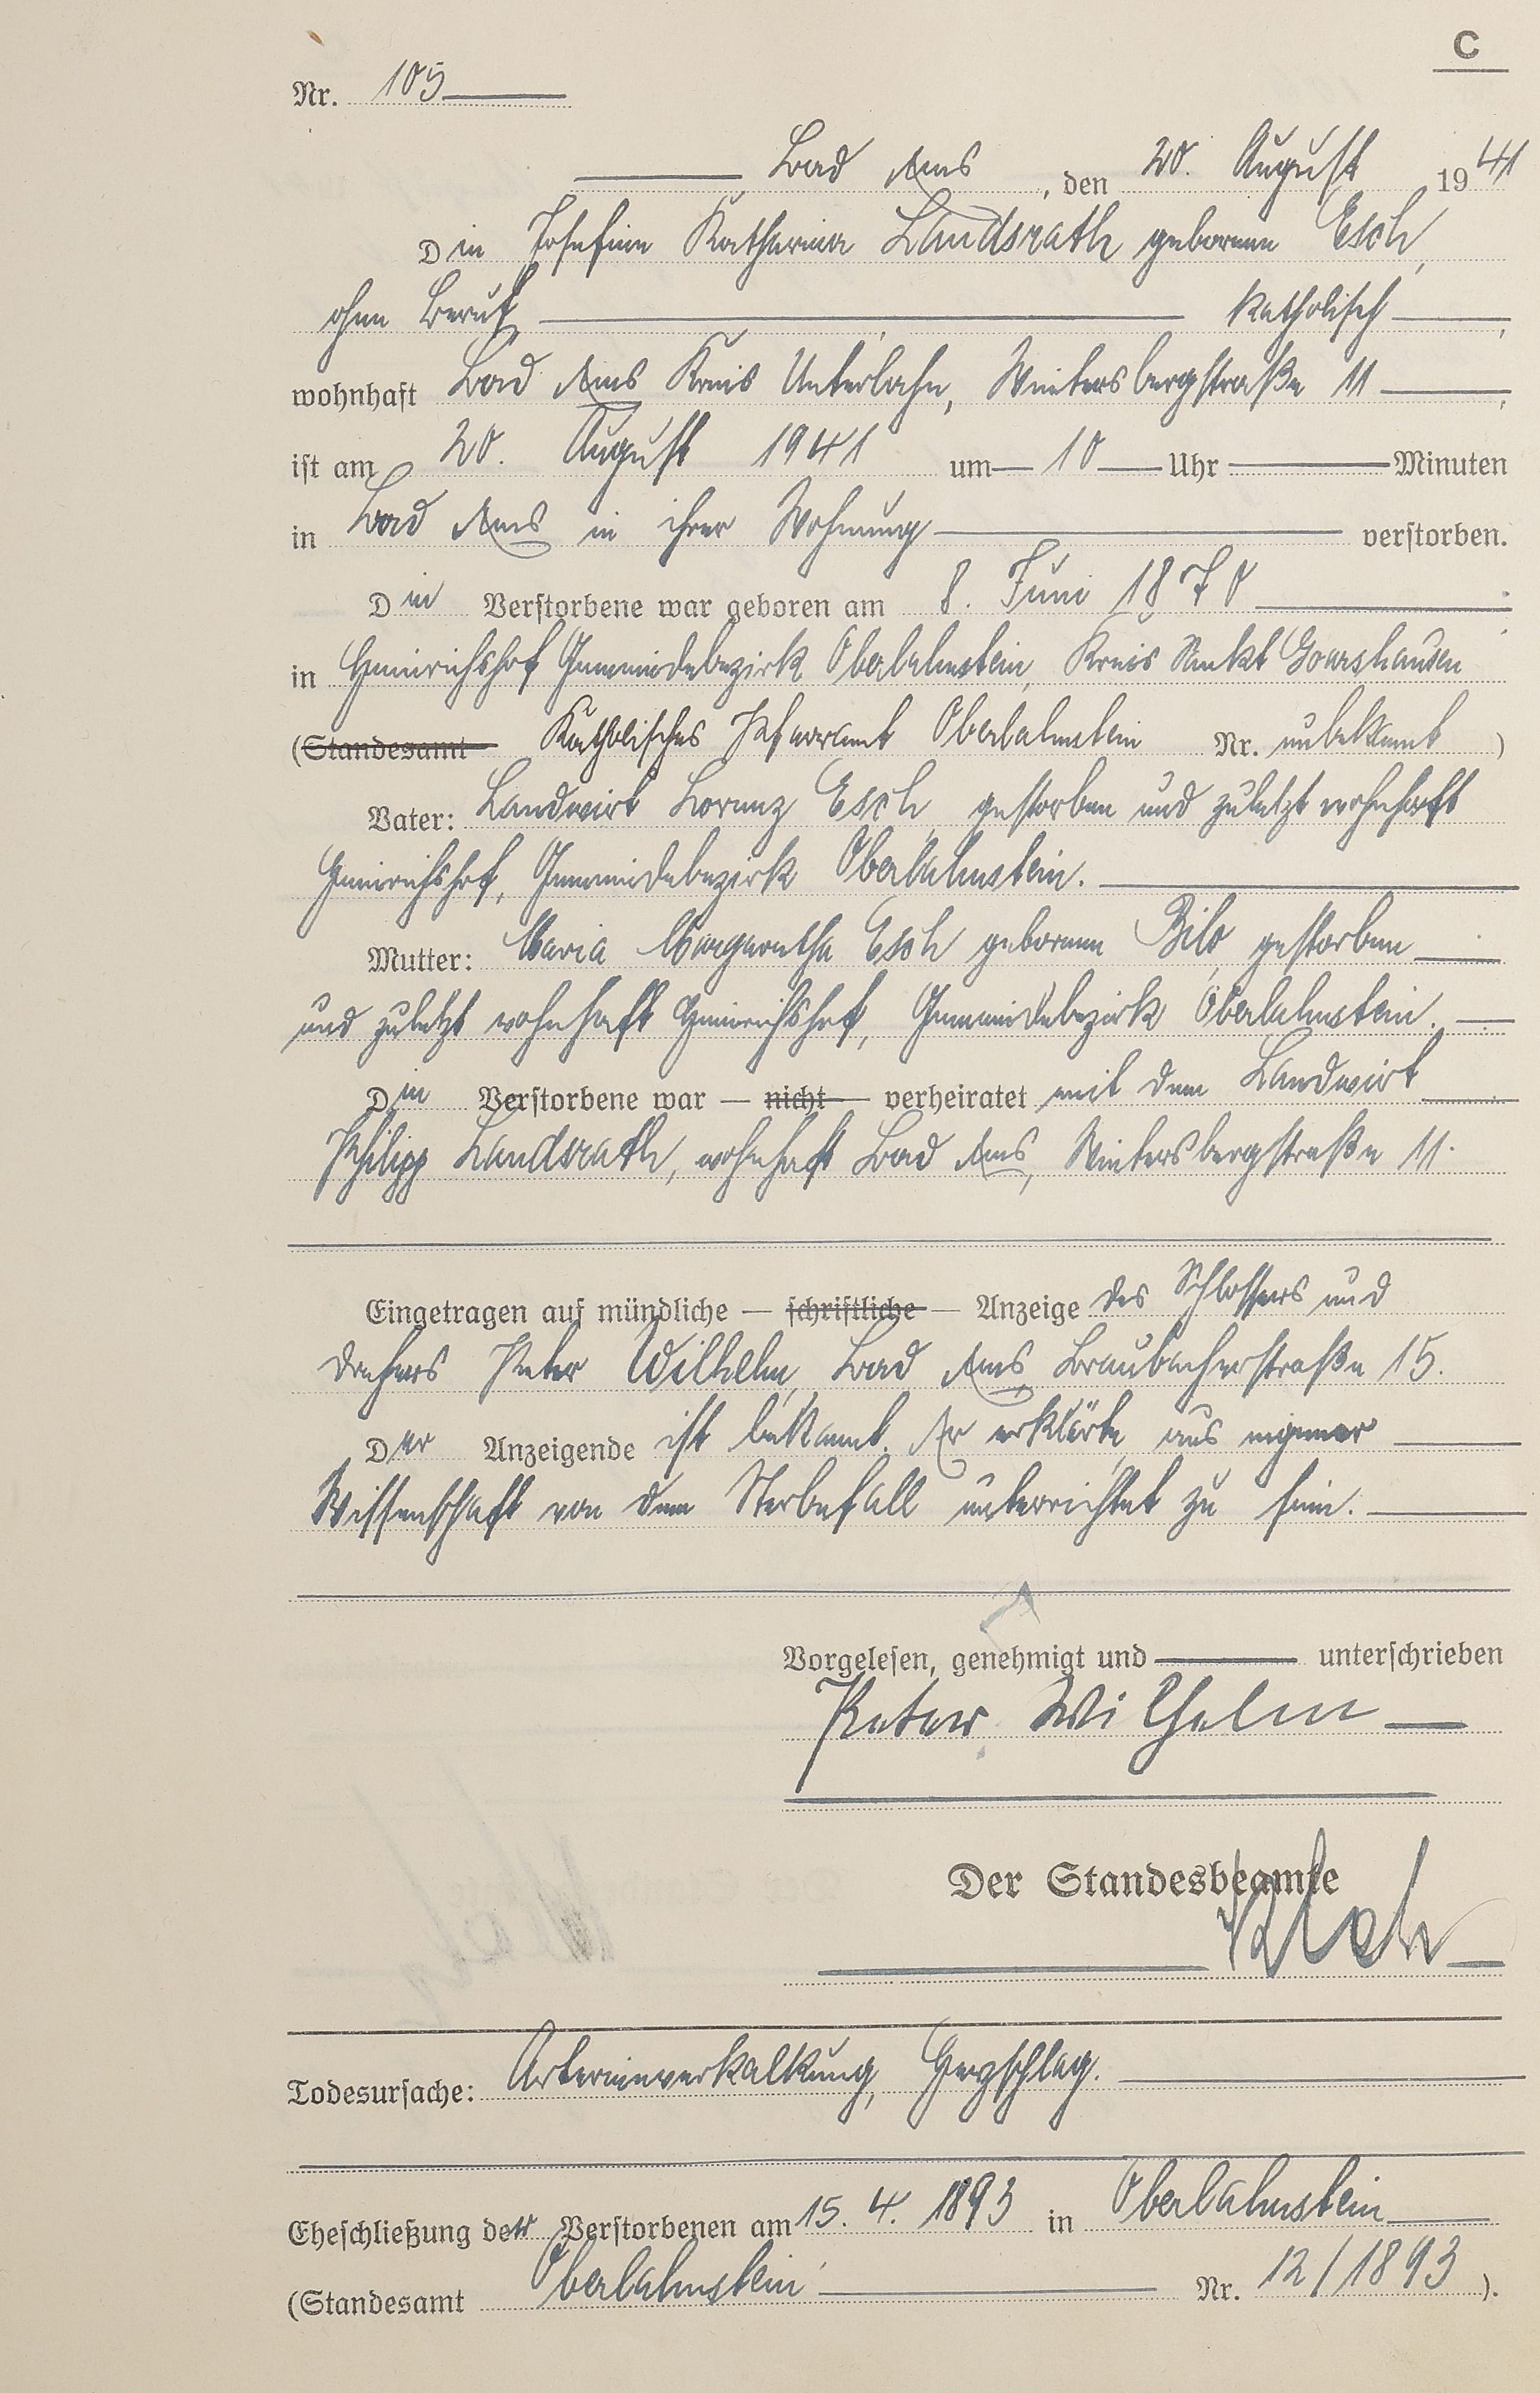 C
Nr. 105
Bad Ems, den 20. August 1941
Die Josefine Katharina Landsrath geborene Esch,
ohne Beruf, katholisch,
wohnhaft Bad Ems Kreis Unterlahn, Wintersbergstraße 11,
ist am 20. August 1941 um 10 Uhr Minuten
in Bad Ems in ihrer Wohnung verstorben.
Die Verstorbene war geboren am 8. Juni 1870
in Heinrichshof Gemeindebezirk Oberlahnstein, Kreis Sankt Goarshausen
(Standesamt Katholisches Pfarramt Oberlahnstein Nr. unbekannt)
Vater: Landwirt Lorenz Esch, gestorben und zuletzt wohnhaft
Heinrichshof, Gemeindebezirk Oberlahnstein.
Mutter: Maria Margaretha Esch geborene Bilo, gestorben
und zuletzt wohnhaft Heinrichshof, Gemeindebezirk Oberlahnstein.
Die Verstorbene war — nicht — verheiratet mit dem Landwirt
Philipp Landsrath, wohnhaft Bad Ems, Wintersbergstraße 11.
Eingetragen auf mündliche — schriftliche — Anzeige des Schlossers und
Drehers Peter Wilhelm, Bad Ems, Braubacherstraße 15.
Der Anzeigende ist bekannt. Er erklärte, aus eigener
Wissenschaft von dem Sterbefall unterrichtet zu sein.
Vorgelesen, genehmigt und unterschrieben
Peter Wilhelm
Der Standesbeamte
Todesursache: Arterienverkalkung, Herzschlag.
Eheschließung der Verstorbenen am 15. 4. 1893 in Oberlahnstein
(Standesamt Oberlahnstein Nr. 12/1893).